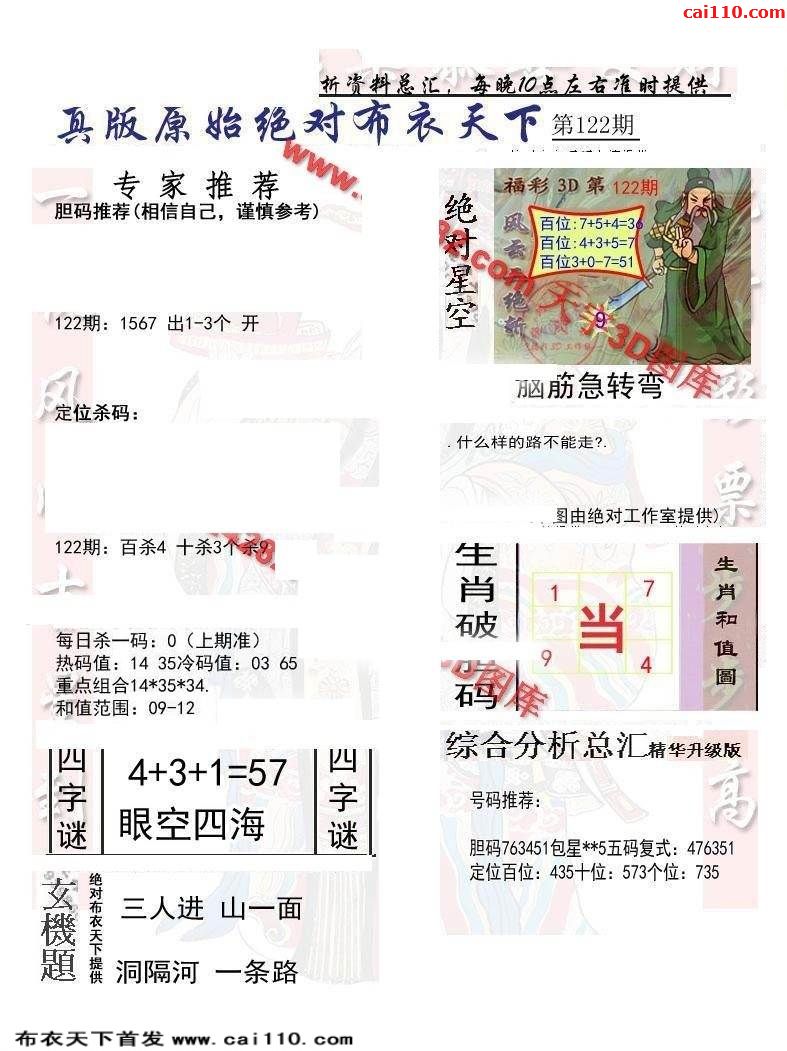 cai110.com
析资料总汇，每晚10点左右准时提供
真版原始绝对布衣天下 第122期
专家推荐
胆码推荐(相信自己，谨慎参考)
122期：1567 出1-3个 开
定位杀码：
122期：百杀4 十杀3个杀9
每日杀一码：0（上期准）
热码值：14 35冷码值：03 65
重点组合14*35*34.
和值范围：09-12
四字谜
4+3+1=57
眼空四海
四字谜
玄機題
绝对布衣天下提供
三人进 山一面
洞隔河 一条路
绝对星空
福彩 3D 第 122期
百位:7+5+4=36
百位:4+3+5=7
百位3+0-7=51
9
天
3D图库
脑筋急转弯
.什么样的路不能走?.
图由绝对工作室提供)
生肖破胆码
1 7
当
9 4
生肖和值圖
综合分析总汇精华升级版
号码推荐：
胆码763451包星**5五码复式：476351
定位百位：435十位：573个位：735
布衣天下首发 www.cai110.com